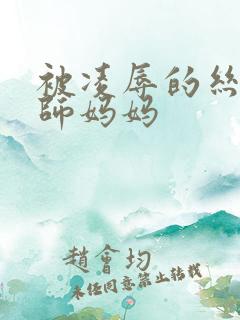 被凌辱的丝
师妈妈
趙會均
未经同意禁止转载